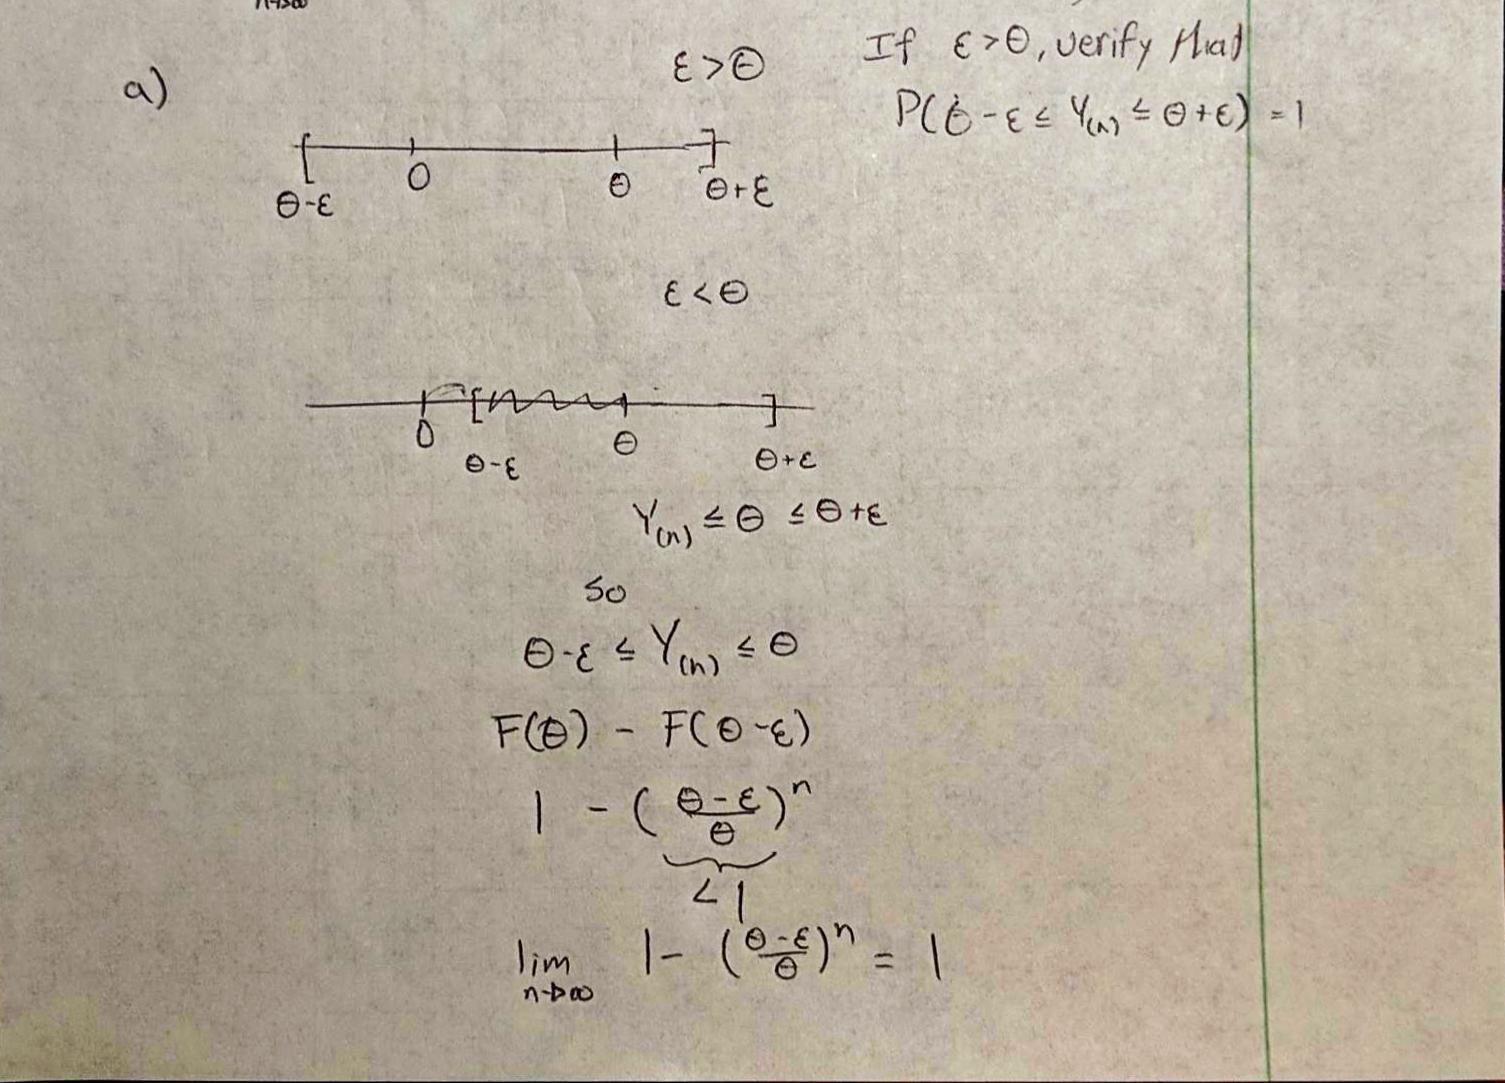 n→∞
a)
ε>θ
If ε>θ, verify that
P(θ-ε ≤ Y(n) ≤ θ+ε) = 1
θ-ε 0 θ θ+ε
ε<θ
0 θ-ε θ θ+ε
Y(n) ≤ θ ≤ θ+ε
so
θ-ε ≤ Y(n) ≤ θ
F(θ) - F(θ-ε)
1 - ((θ-ε)/θ)^n
< 1
lim n→∞ 1 - ((θ-ε)/θ)^n = 1